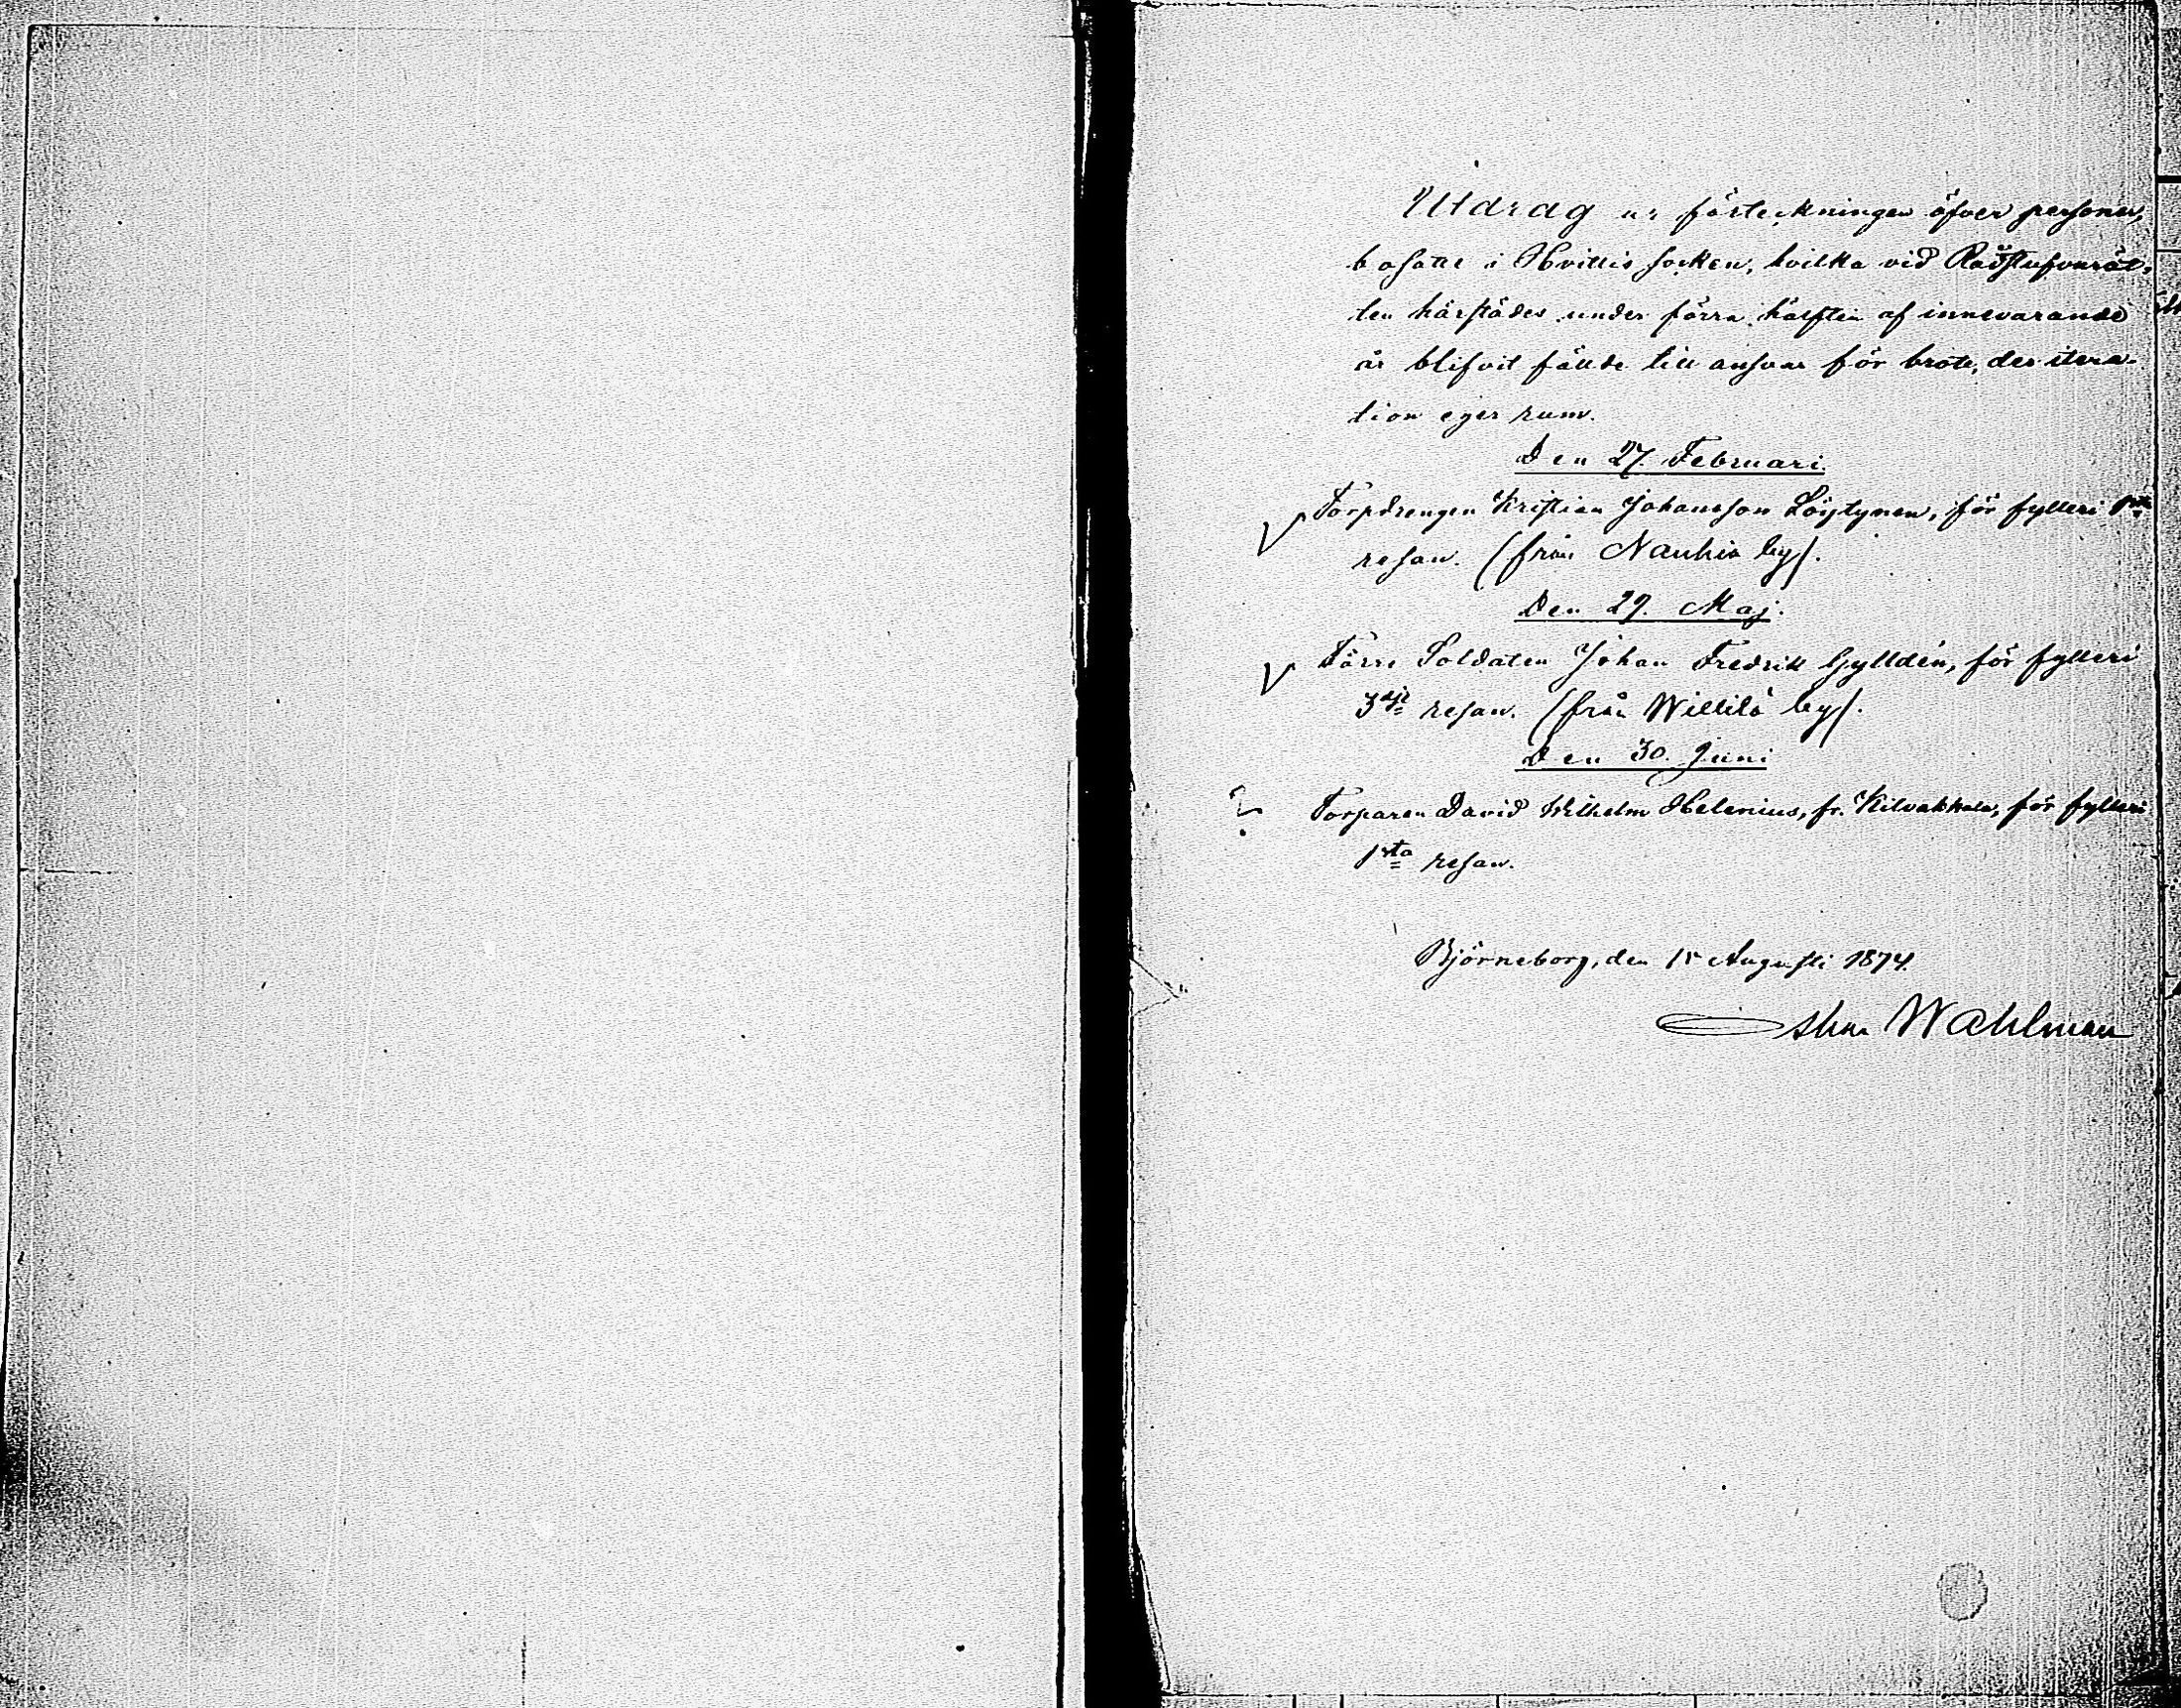 Utdrag ur förteckningen öfver personer,
bosatte i Hvittis socken, hvilka vid Rådstufvurät-
ten härstädes under förra hälften af innevarande
år blifvit fällde till ansvar för brott, der itera-
tion eger rum.
Den 27. Februari.
Torpdrengen Kristian Johansson Löytynen, för fylleri 1sta
resan. (från Nanhia by).
Den 29. Maj.
Förre Soldaten Johan Fredrik Gylldén, för fylleri
3dje resan. (från Willilä by).
Den 30. Juni
? Torparen David Wilhelm Helenius, fr. Kilvakkala, för fylleri
1sta resan.
Björneborg, den 15 Augusti 1874.
Wahlman